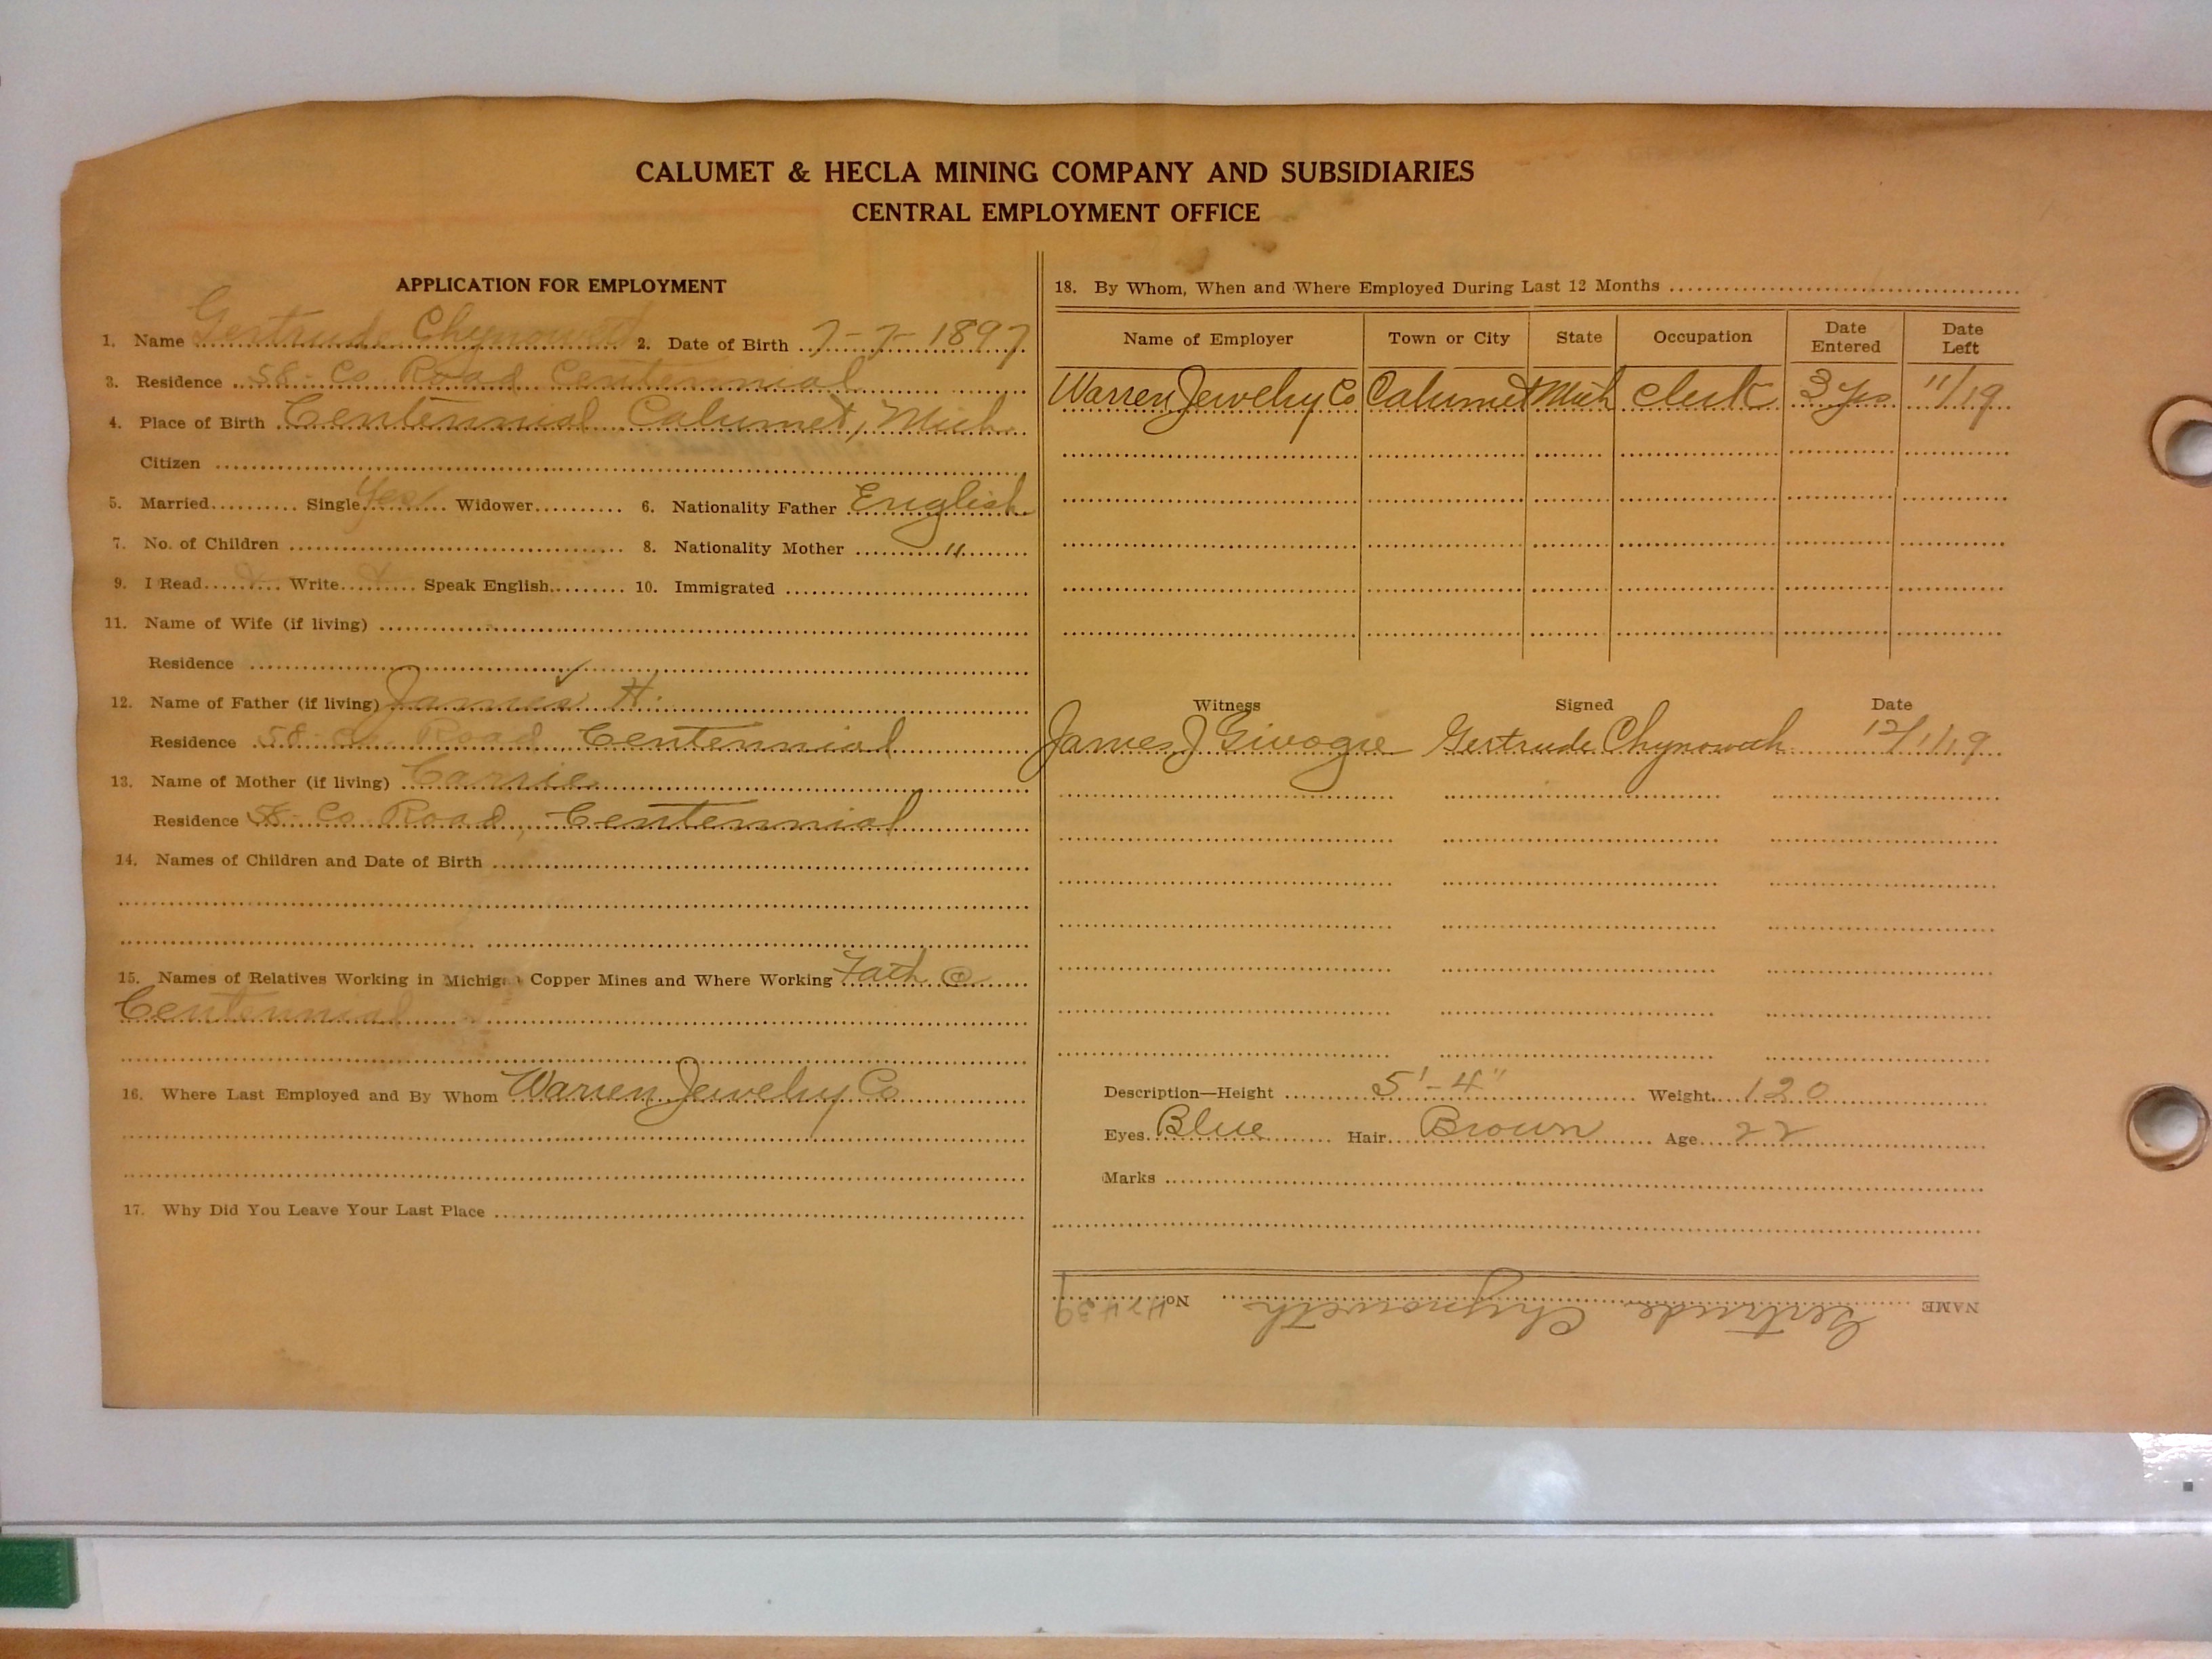 CALUMET & HECLA MINING COMPANY AND SUBSIDIARIES
CENTRAL EMPLOYMENT OFFICE
APPLICATION FOR EMPLOYMENT
1. Name Gertrude Chynoweth 2. Date of Birth 7-7-1897
3. Residence 58- Co Road Centennial
4. Place of Birth Centennial Calumet, Mich
Citizen
5. Married Single Yes Widower 6. Nationality Father English
7. No. of Children 8. Nationality Mother "
9. I Read Write Speak English 10. Immigrated
11. Name of Wife (if living)
Residence
12. Name of Father (if living) James H.
Residence 58- Co. Road Centennial
13. Name of Mother (if living) Carrie
Residence 58- Co Road, Centennial
14. Names of Children and Date of Birth
15. Names of Relatives Working in Michigan Copper Mines and Where Working Fath @
Centennial
16. Where Last Employed and By Whom Warren Jewelry Co
17. Why Did You Leave Your Last Place
18. By Whom, When and Where Employed During Last 12 Months
Name of Employer Town or City State Occupation Date Entered Date Left
Warren Jewelry Co Calumet Mich clerk 3 yrs 11/19
Witness Signed Date
James J Gertrude Chynoweth 12/1/19
Description—Height 5'-4" Weight 120
Eyes Blue Hair Brown Age 22
Marks
NAME Gertrude Chynoweth No. 47439